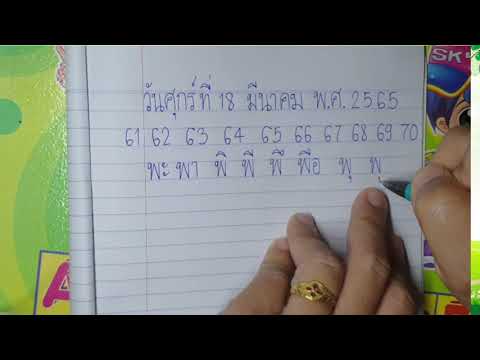 วันศุกร์ที่ 18 มีนาคม พ.ศ. 2565
61 62 63 64 65 66 67 68 69 70
พะ พา พิ พี พึ พือ พุ พุ
SK